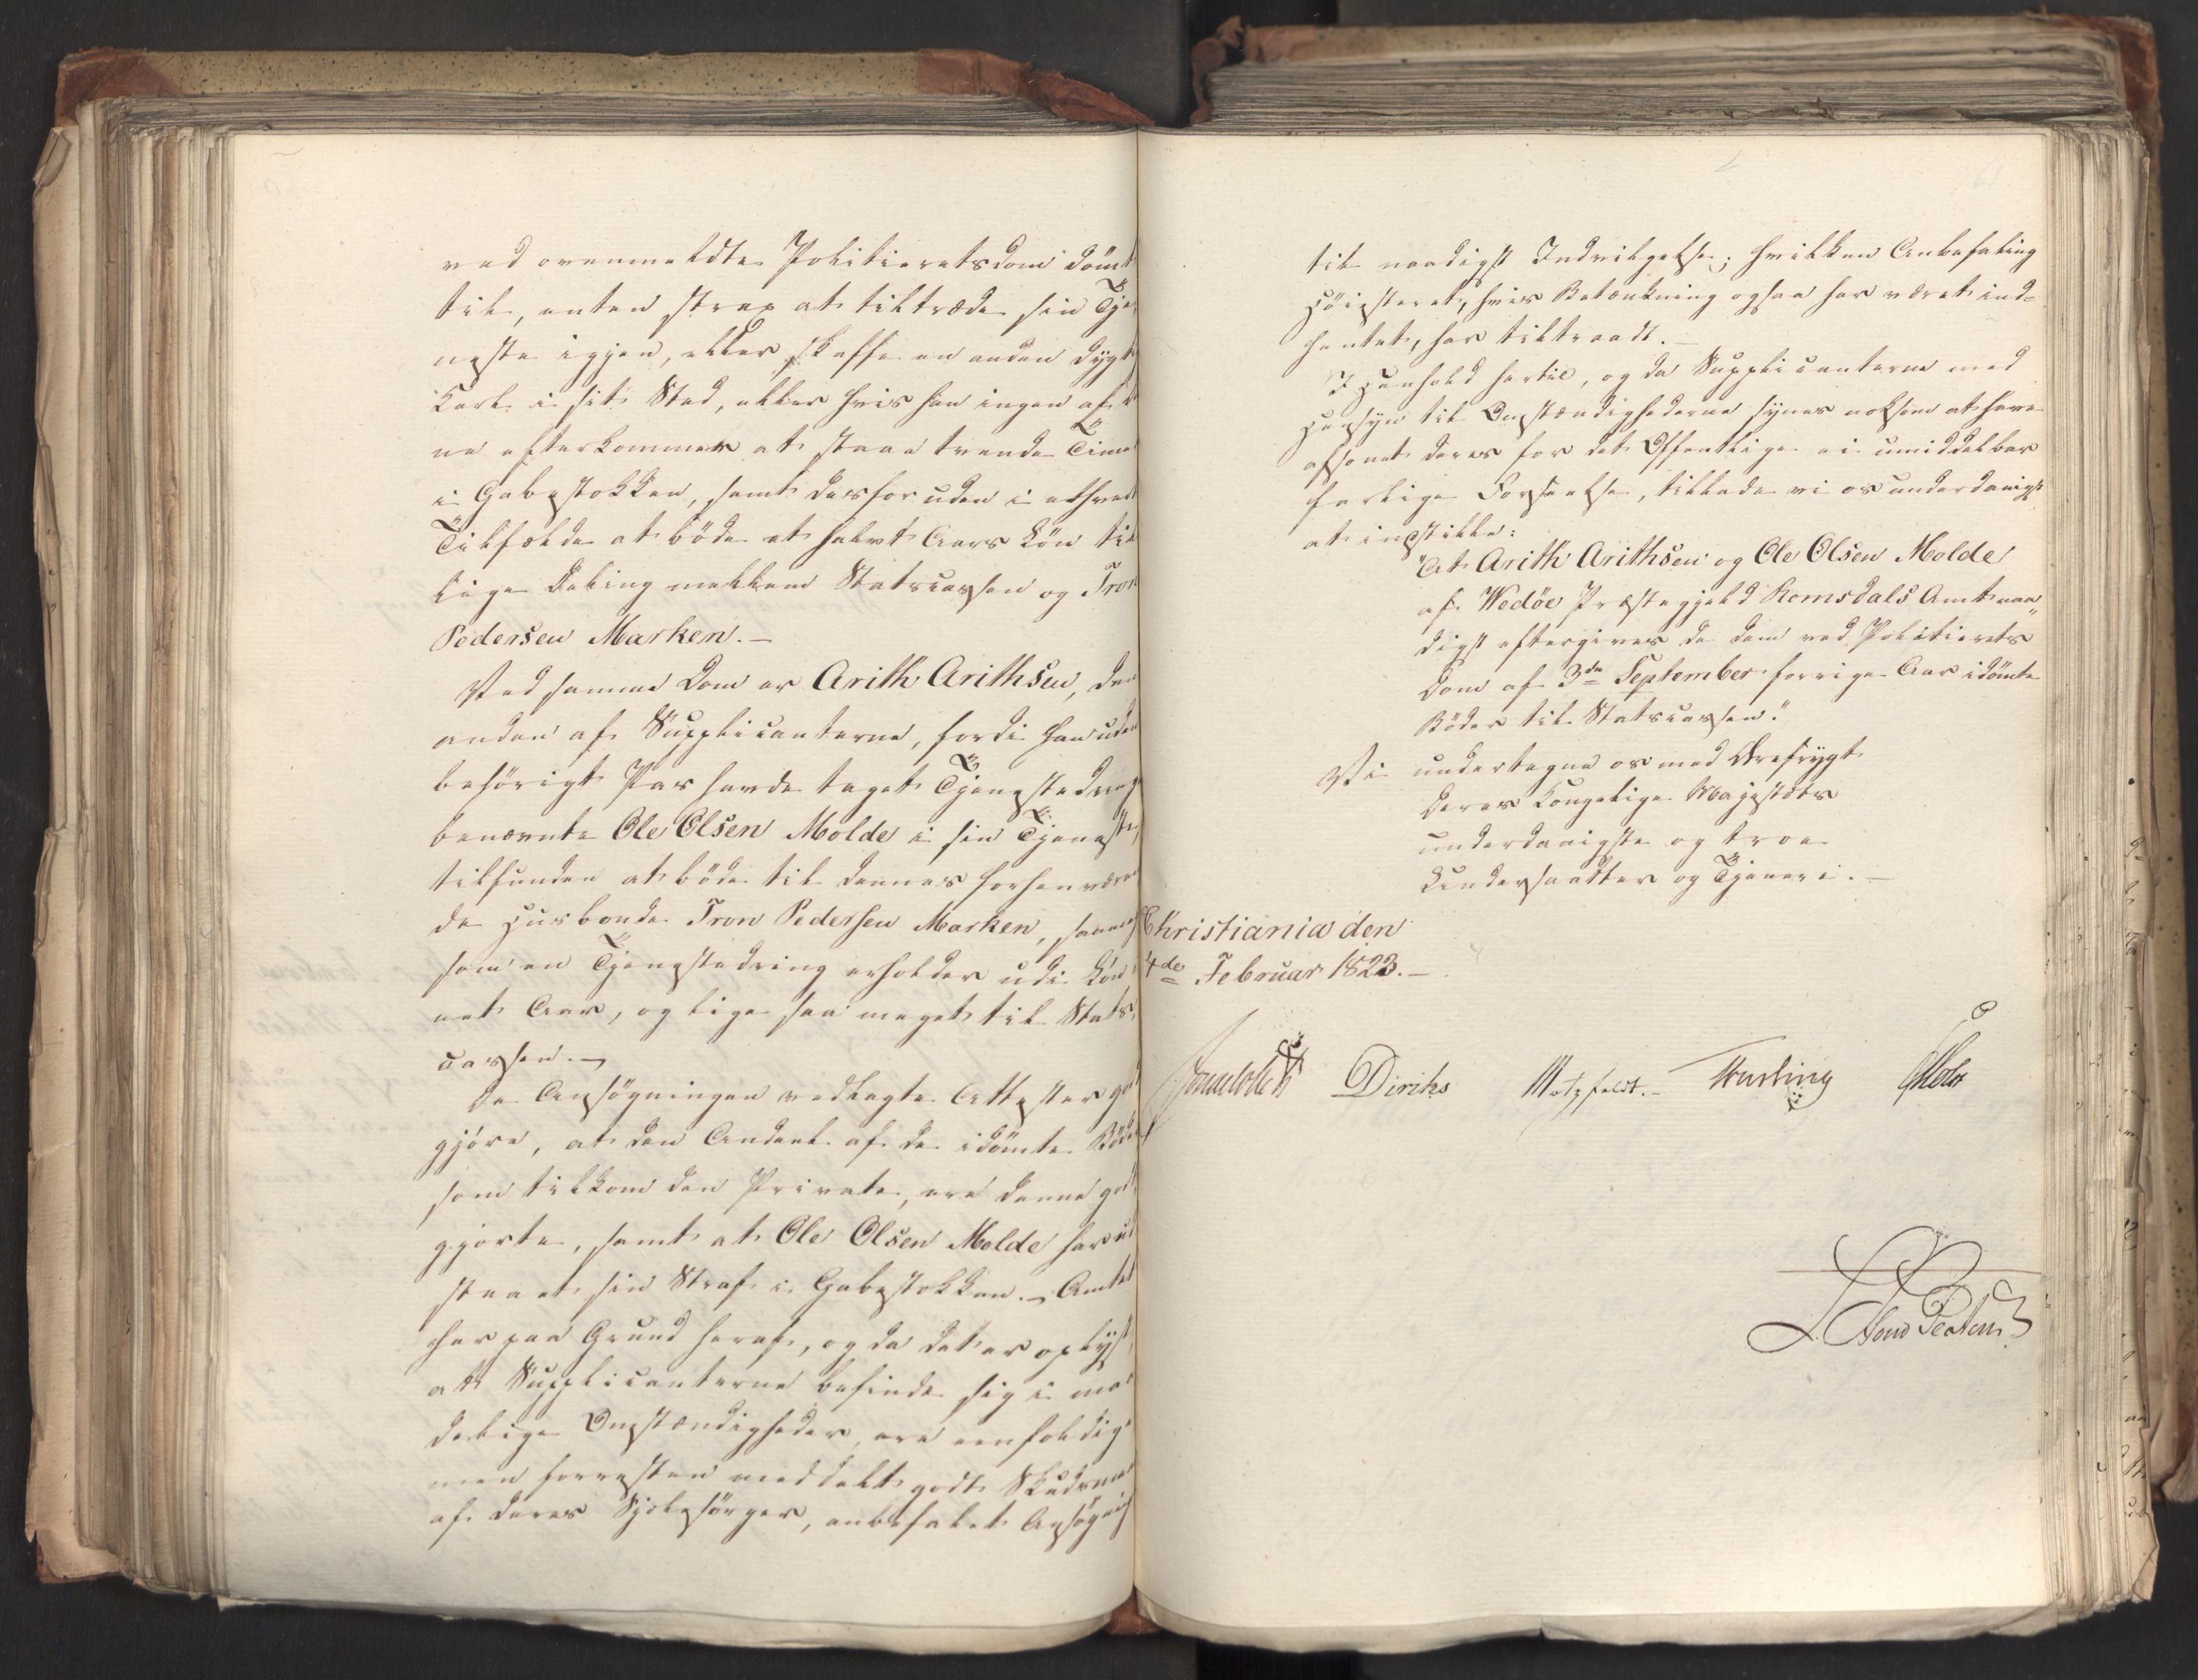 ved ovenmeldte Politieretsdom dömt
til, enten strax at tiltræde sin Tje
neste igjen, eller skaffe en anden dygtig
Karl i sit Sted, eller hvis han ingen af
ne efterkommer at staae trende Timer
i Gabestokken, samt desforuden i ethvert
Tilfælde at böde et halvt Aars Lön til
lige Deling mellem Statscassen og Tron
Pedersen Marken.—
Ved samme Dom er Arith Arithsen, den
anden af Supplicanterne, fordi han uden
behörigt Pas havde taget Tjenestedreng
benævnte Ole Olsen Molde i sin Tjeneste,
tilfunden at böde til dennes forhenværen
de Huusbonde Tron Pedersen Marken, saameget
som en Tjenestedreng erholder udi Lön i
eet Aar, og lige saa meget til Stats,
cassen.—
De Ansögningen vedlagte Attester god
gjöre, at den Andeel af de idömte Böder
som tilkom den Private, ere denne god
gjorte, samt at Ole Olsen Molde har ud
staaet sin Straf i Gabestokken.— Amtet
har paa Grund heraf, og da det er oplyst,
at Supplicanterne befinde sig i maa
delige Omstændigheder, ere eenfoldige
men forresten meddelt godt Skudsmaal
af deres Sjelesörger, anbefalet Ansögning
til naadigst Indvilgelse; hvilken Anbefaling
Höiesteret, hvis Betænkning ogsaa har været ind-
hentet, har tiltraadt.—
I Henhold hertil, og da Supplicanterne med
Hensyn til Omstændighederne synes noksom at have
afsonet deres for det Offentlige ei umiddelbar
farlige Forseelse, tillade vi os underdanigst
at indstille:
"At Arith Arithsen og Ole Olsen Molde
af Wedöe Præstegjeld Romsdals Amt naa
digst eftergives de dem ved Politierets
Dom af 3de September forrige Aar idömte
Böder til Statscassen."
Vi undertegne os med Ærefrygt
Deres Kongelige Majestæts
underdanigste og troe
Undersaatter og Tjenere.—
Christiania den
4de Februar 1823.—
Sommerhielm Diriks Motzfeldt.— Krebs Holst